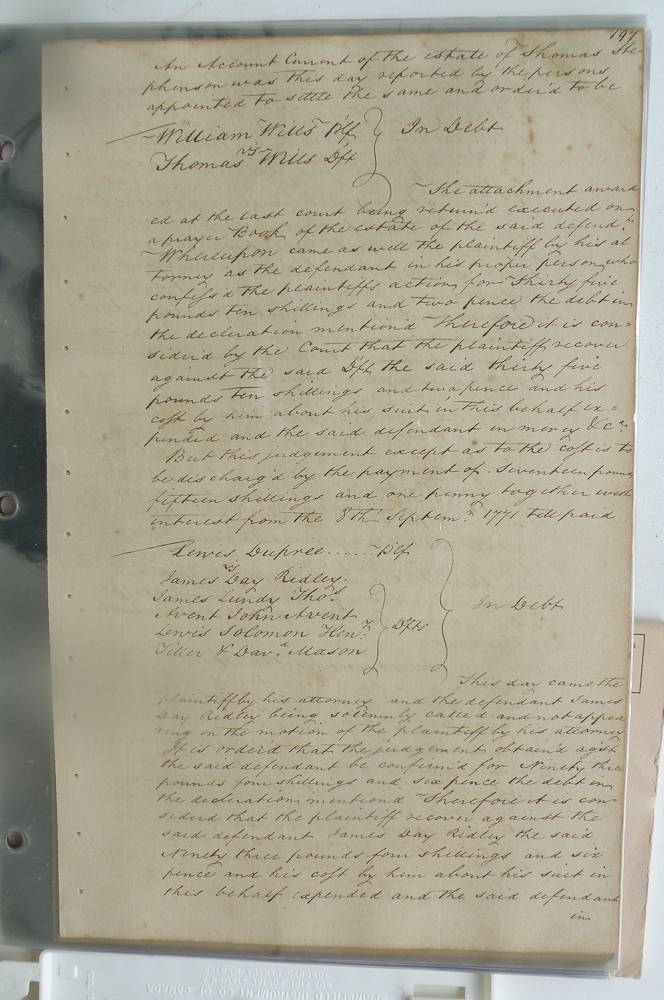 197
An Account Current of the estate of Thomas Ste=
phenson was this day reported by the persons
appointed to settle the same and order'd to be
William Wills Plf } In Debt
vs
Thomas Wills Dft
The attachment award
ed at the last court being return'd executed on
a prayer Book of the estate of the said defend.t
Whereupon came as well the plaintiff by his at
torney as the defendant in his proper person who
confess'd the plaintiffs action for Thirty five
pounds ten shillings and two pence the debt in
the declaration mention'd Therefore it is con=
sider'd by the Court that the plaintiff recover
against the said Dft the said thirty five
pounds ten shillings and two pence and his
cost by him about his suit in this behalf ex=
pended and the said defendant in mercy &c.a
But this judgement except as to the cost is to
be discharg'd by the payment of Seventeen pound
fifteen shillings and one penny together with
interest from the 8th Septem.r 1771 till paid
Lewis Dupree ...... Plf
vs
James Day Ridley.
James Lundy Tho.s
Avent John Avent
Lewis Solomon Hen.y } Dfts } In Debt
Tiller & Dav.d Mason
This day came the
plaintiff by his attorney and the defendant James
Day Ridley being solemnly called and not appea
ring on the motion of the plaintiff by his attorney
It is order'd that the judgement obtain'd agst
the said defendant be confirm'd for Ninety three
pounds four shillings and six pence the debt in
the declaration mention'd Therefore it is con=
siderd that the plaintiff recover against the
said defendant James Day Ridley the said
Ninety three pounds four shillings and six
pence and his cost by him about his suit in
this behalf expended and the said defendant
in
SPRINGFIELD INSTRUMENT CO. OF CANADA
TORONTO CANADA